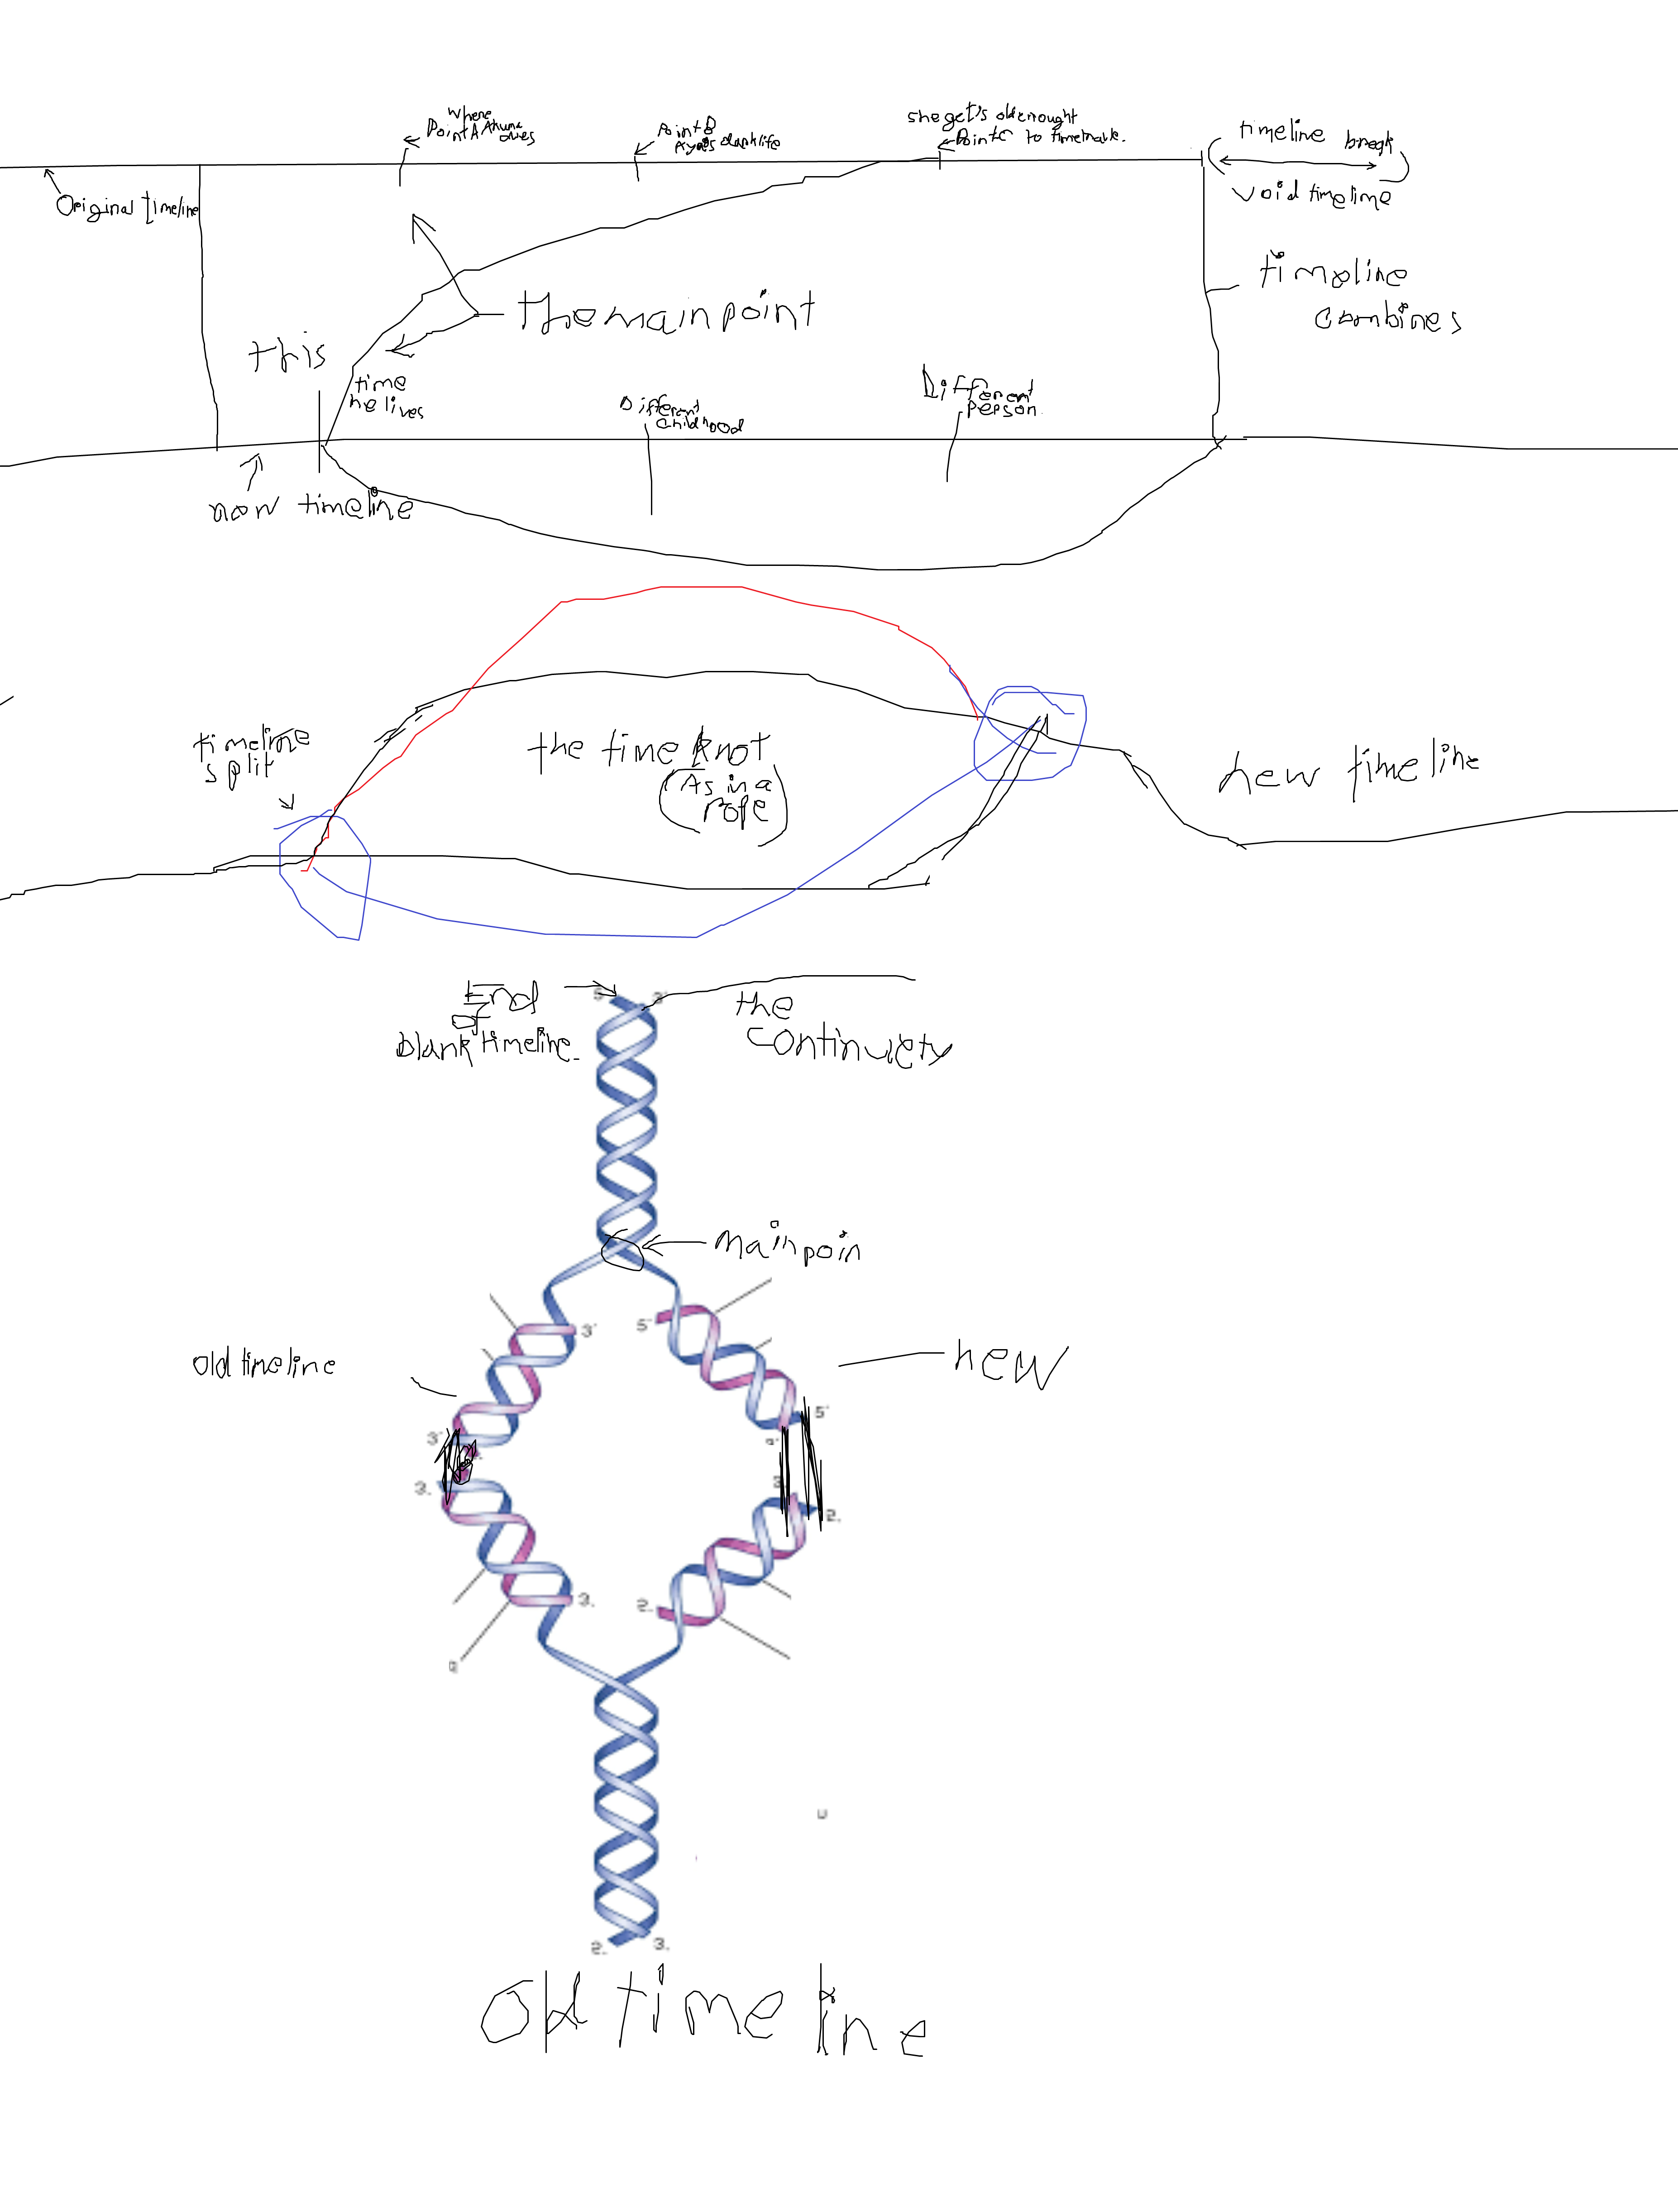 where
Point A Akuma
dies
Point B
Aya's dark life
she gets old enought
Point C to timetravle.
timeline break
void timeline
Original timeline
the main point
timeline
combines
this
time
he lives
Different
childhood
Different
person
now timeline
timeline
split
the time knot
(As in a
rope)
new timeline
End
of
blank timeline.
the
continuiety
5'
3'
main poin
3'
5'
old timeline
new
5'
3'
3.
3
2.
3.
2.
a
u
2.
3.
old time line